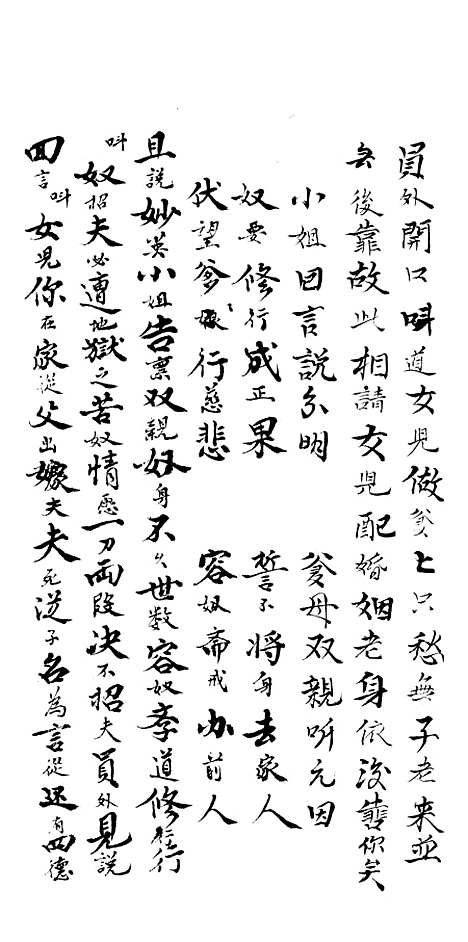 員外開口呌道女児做爹〻只愁無子老来並
去後靠故此相請女児配婚姻老身依後囍你矣
小姐回言說分明　爹母双親听元因
奴要修行成正果　誓不將身去家人
伏望爹娘行慈悲　容奴斋戒办前人
且說妙英小姐告禀双親奴身不久世数容奴李道修行
呌奴招夫必遭地獄之苦奴情愿一刀兩段决不招夫員外見說
回言呌女児你在家從父出嫁夫夫死従子名為言從还有四德